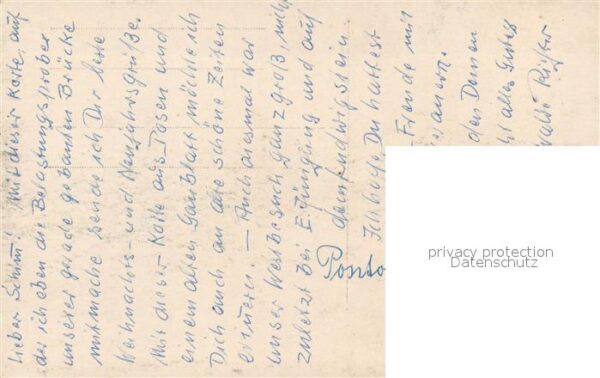 Lieber Schimm! Mit dieser Karte, auf
der ich eben die Belastungsprober
unserer gerade gebauten Brücke
mitmache sende ich Dir beste
Weihnachts- und Neujahrsgrüße.
Mit dieser Karte aus Posen und
einem alten Gaublatt möchte ich
Dich auch an alte schöne Zeiten
erinnern. — Auch diesmal war
unser Westbesuch ganz groß,
zuletzt bei E. Jüngling und auf
dem Ludwigstein.
Ich hoffe Du hattest
Freude mit
den Deinen
alles Gutes
Ponto
privacy protection
Datenschutz